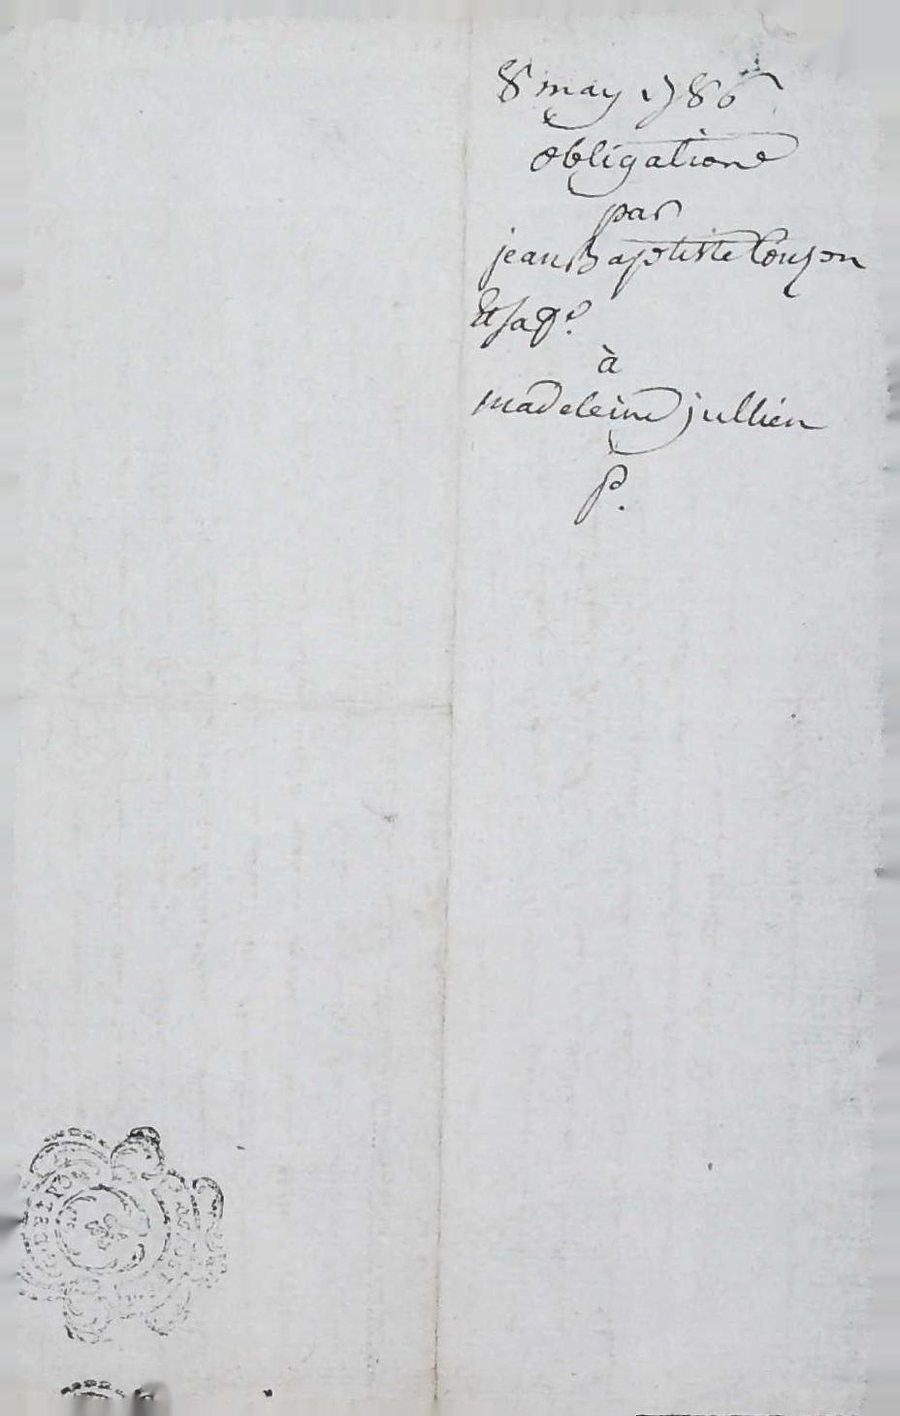 8 may 1786
obligation
par
jean Baptiste Couzon
Et sa fe.
à
madeleine jullien
P.